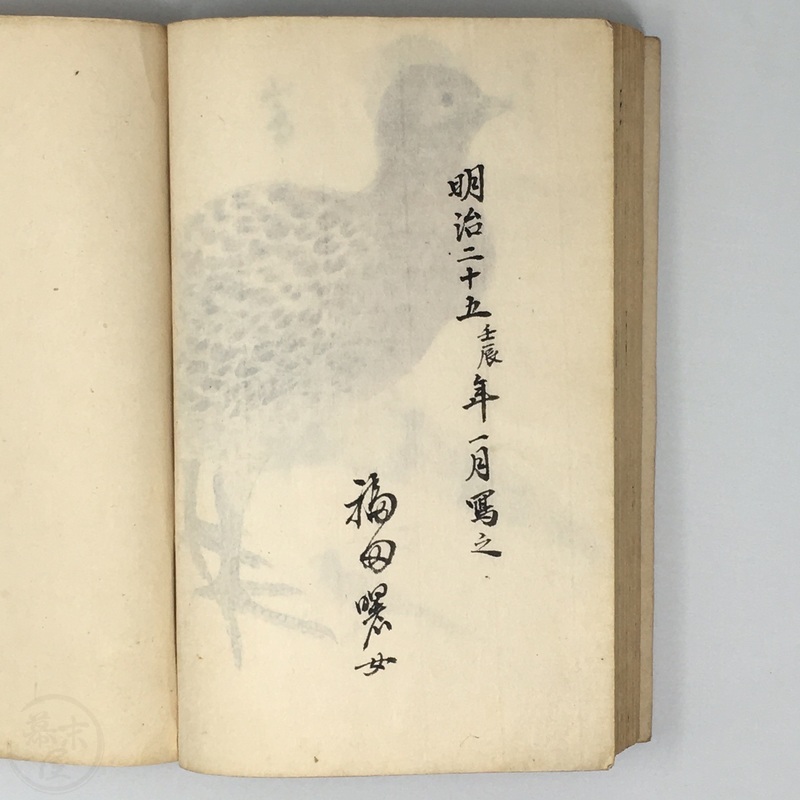 明治二十五壬辰年一月寫之
福田曙女
幕末屋